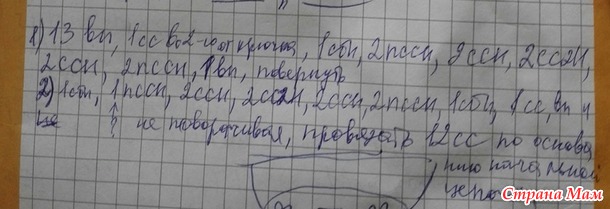 1) 13 вп, 1сс во 2-ю от крючка, 1сбн, 2пссн, 2ссн, 2сс2н,
2ссн, 2пссн, 1вп, повернуть
2) 1сбн, 1пссн, 2ссн, 2сс2н, 2ссн, 2пссн, 1сбн, 1сс, вп и
не ? не поворачивая, провязать 12сс по основа
нию начальной
цепо
Страна Мам